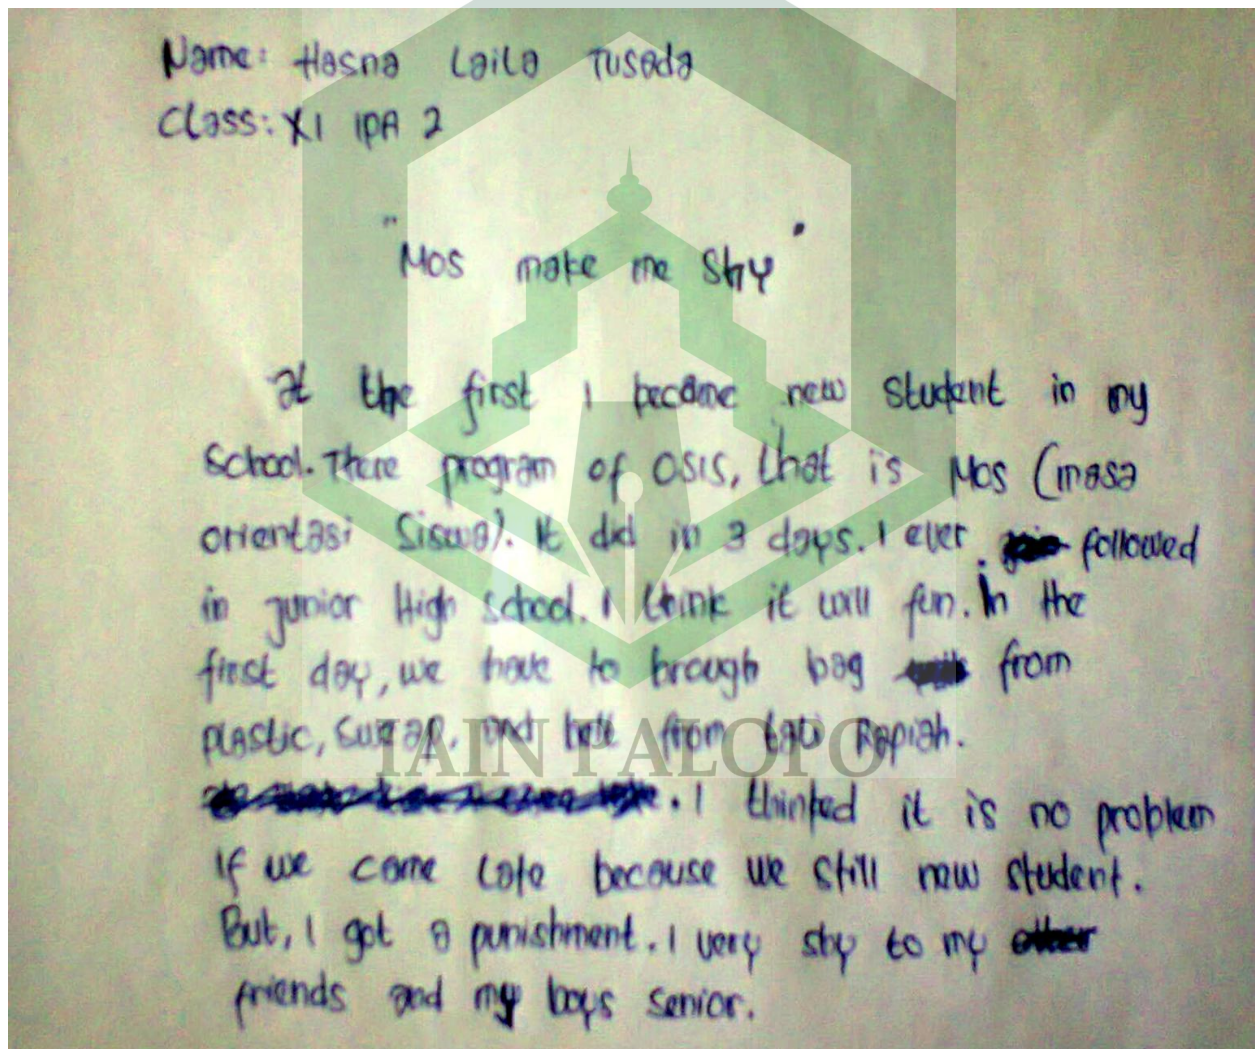 Name: Hasna Laila Tusada
Class: XI IPA 2
"Mos make me Shy"
at the first I became new student in my
School. There program of OSIS, that is Mos (masa
orientasi Siswa). It did in 3 days. I ever followed
in junior High school. I think it will fun. In the
first day, we have to brough bag from
plastic, and belt from tali Rapiah.
IAIN PALOPO
. I thinked it is no problem
If we come late because we still new student.
But, I got a punishment. I very shy to my
friends and my boys senior.